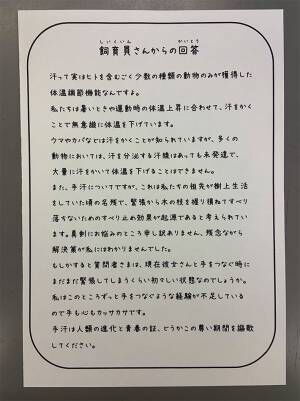 しいくいん　かいとう
飼育員さんからの回答
汗って実はヒトを含むごく少数の種類の動物のみが獲得した
体温調節機能なんですよ。
私たちは暑いときや運動時の体温上昇に合わせて、汗をかく
ことで無意識に体温を下げています。
ウマやカバなどは汗をかくことが知られていますが、多くの
動物においては、汗を分泌する汗腺はあっても未発達で、
大量に汗をかいて体温を下げることはできません。
また、手汗についてですが、これは私たちの祖先が樹上生活
をしていた頃の名残で、緊張から木の枝を握り損ねてすべり
落ちないためのすべり止め効果が起源であると考えられてい
ます。真剣にお悩みのところ申し訳ありません、残念ながら
解決策が私にはわかりませんでした。
もしかすると質問者さまは、現在彼女さんと手をつなぐ時に
まだまだ緊張してしまうくらい初々しい状態なのでしょうか。
私はここのところずっと手をつなぐような経験が不足している
ので手も心もカッサカサです。
手汗は人類の進化と青春の証、どうかこの尊い期間を謳歌
してください。